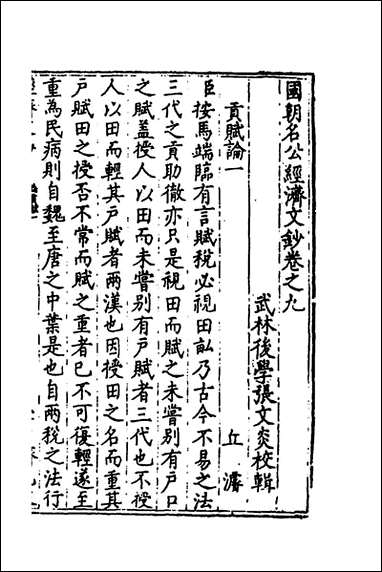 國朝名公經濟文鈔卷之九
武林後學張文炎校輯
貢賦論一 丘濬
臣按馬端臨有言賦税必視田畝乃古今不易之法
三代之貢助徹亦只是視田而賦之未嘗別有戶口
之賦蓋授人以田而未嘗別有戶賦者三代也不授
人以田而輕其戶賦者兩漢也因授田之名而重其
戶賦田之授否不常而賦之重者已不可復輕遂至
重為民病則自魏至唐之中葉是也自兩税之法行